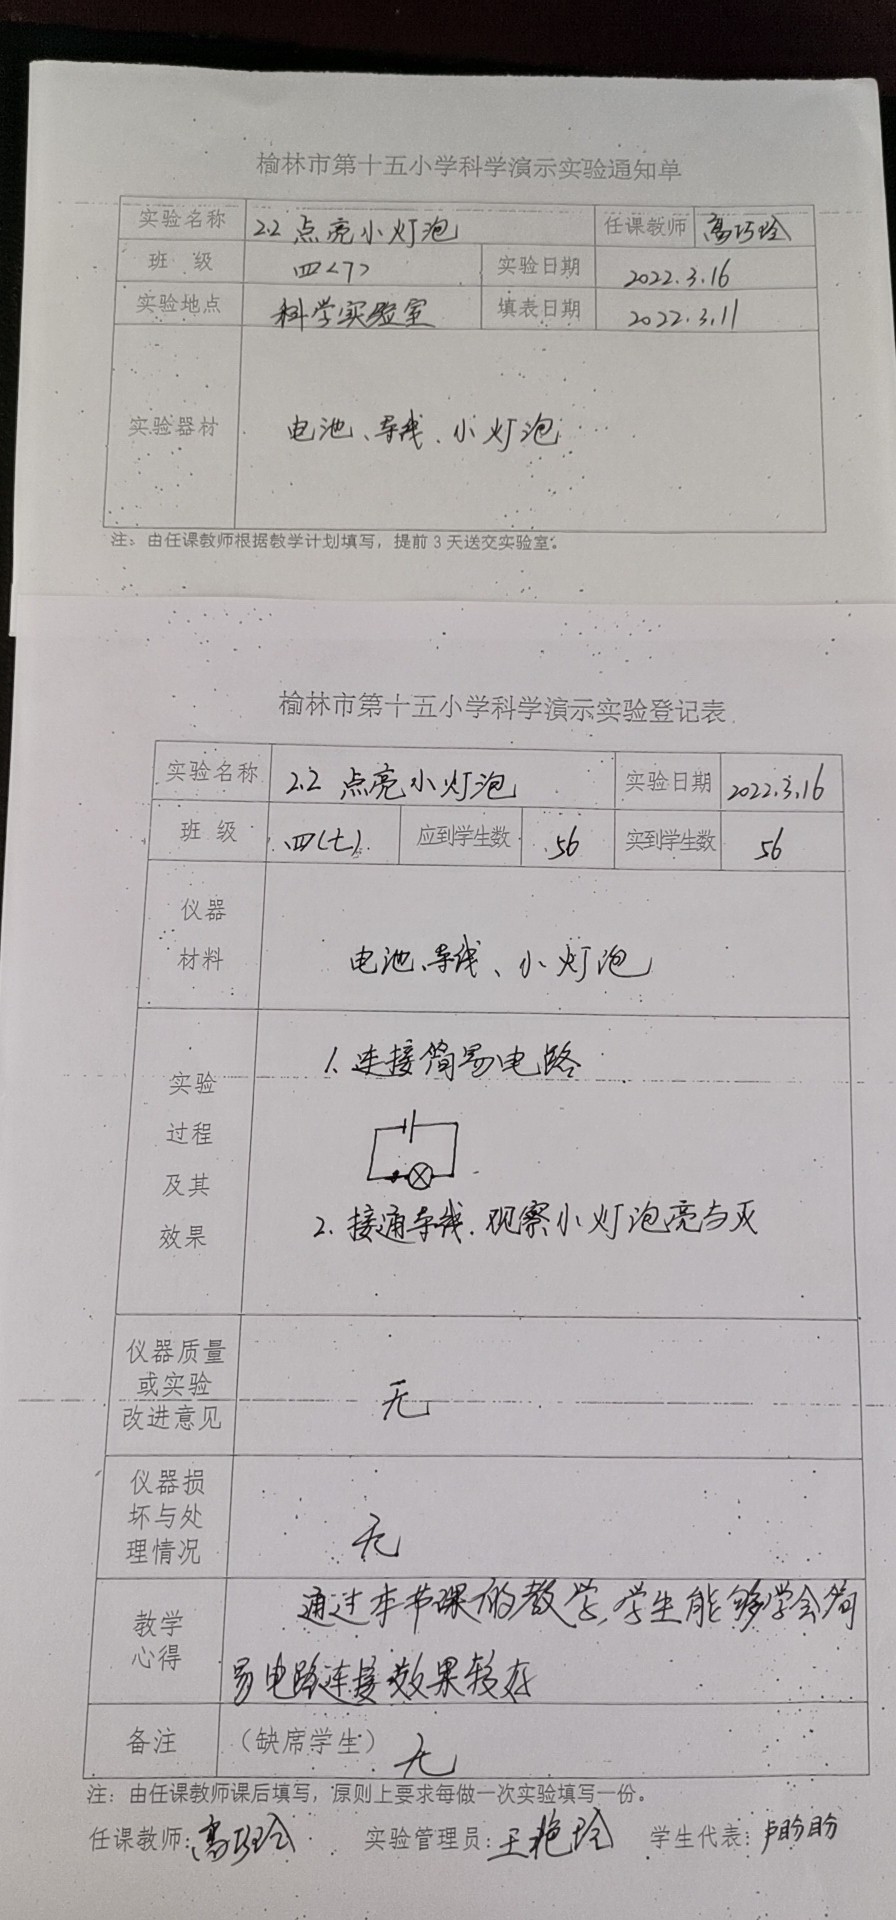 榆林市第十五小学科学演示实验通知单
实验名称 2.2 点亮小灯泡 任课教师 高巧玲
班 级 四<7> 实验日期 2022.3.16
实验地点 科学实验室 填表日期 2022.3.11
实验器材 电池、导线、小灯泡
注：由任课教师根据教学计划填写，提前3天送交实验室。
榆林市第十五小学科学演示实验登记表
实验名称 2.2 点亮小灯泡 实验日期 2022.3.16
班 级 四(七) 应到学生数 56 实到学生数 56
仪器
材料
电池、导线、小灯泡
实验
过程
及其
效果
1、连接简易电路
2、接通导线，观察小灯泡亮与灭
仪器质量
或实验
改进意见
无
仪器损
坏与处
理情况
无
教学
心得
通过本节课的教学，学生能够学会简
易电路连接效果较好
备注 （缺席学生） 无
注：由任课教师课后填写，原则上要求每做一次实验填写一份。
任课教师：高巧玲 实验管理员：王艳玲 学生代表：卢盼盼